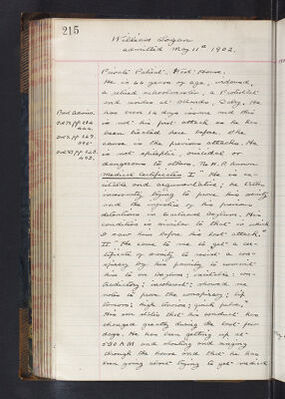 215
William Logan
admitted May 11th 1902.
Private Patient. West House.
He is 66 years of age, widowed,
a retired schoolmaster, a Protestant
and resides at
has been 14 days insane and this
is not his first attack as he has
been treated here before. The
cause is the previous attacks. He
is not epileptic, suicidal or
dangerous to others. No H. P. known
Medical Certificates I "He is ex-
citable and argumentative; he talks
incessantly trying to prove his sanity
and the injustice of his previous
detentions in Asylum. His
condition is similar to that in which
I saw him before his last attack."
II "He came to me to get a cer-
tificate of sanity to resist a con-
spiracy by his family to commit
him to an Asylum; excitable; con-
tradictory; incoherent; showed me
notes to prove the conspiracy; lip
tremors; high voice; quick pulse."
His son states that his conduct has
changed greatly during the last few
days. He has been getting up at
5.30 A.M and shouting and singing
through the house and that he has
been going about trying to get medical